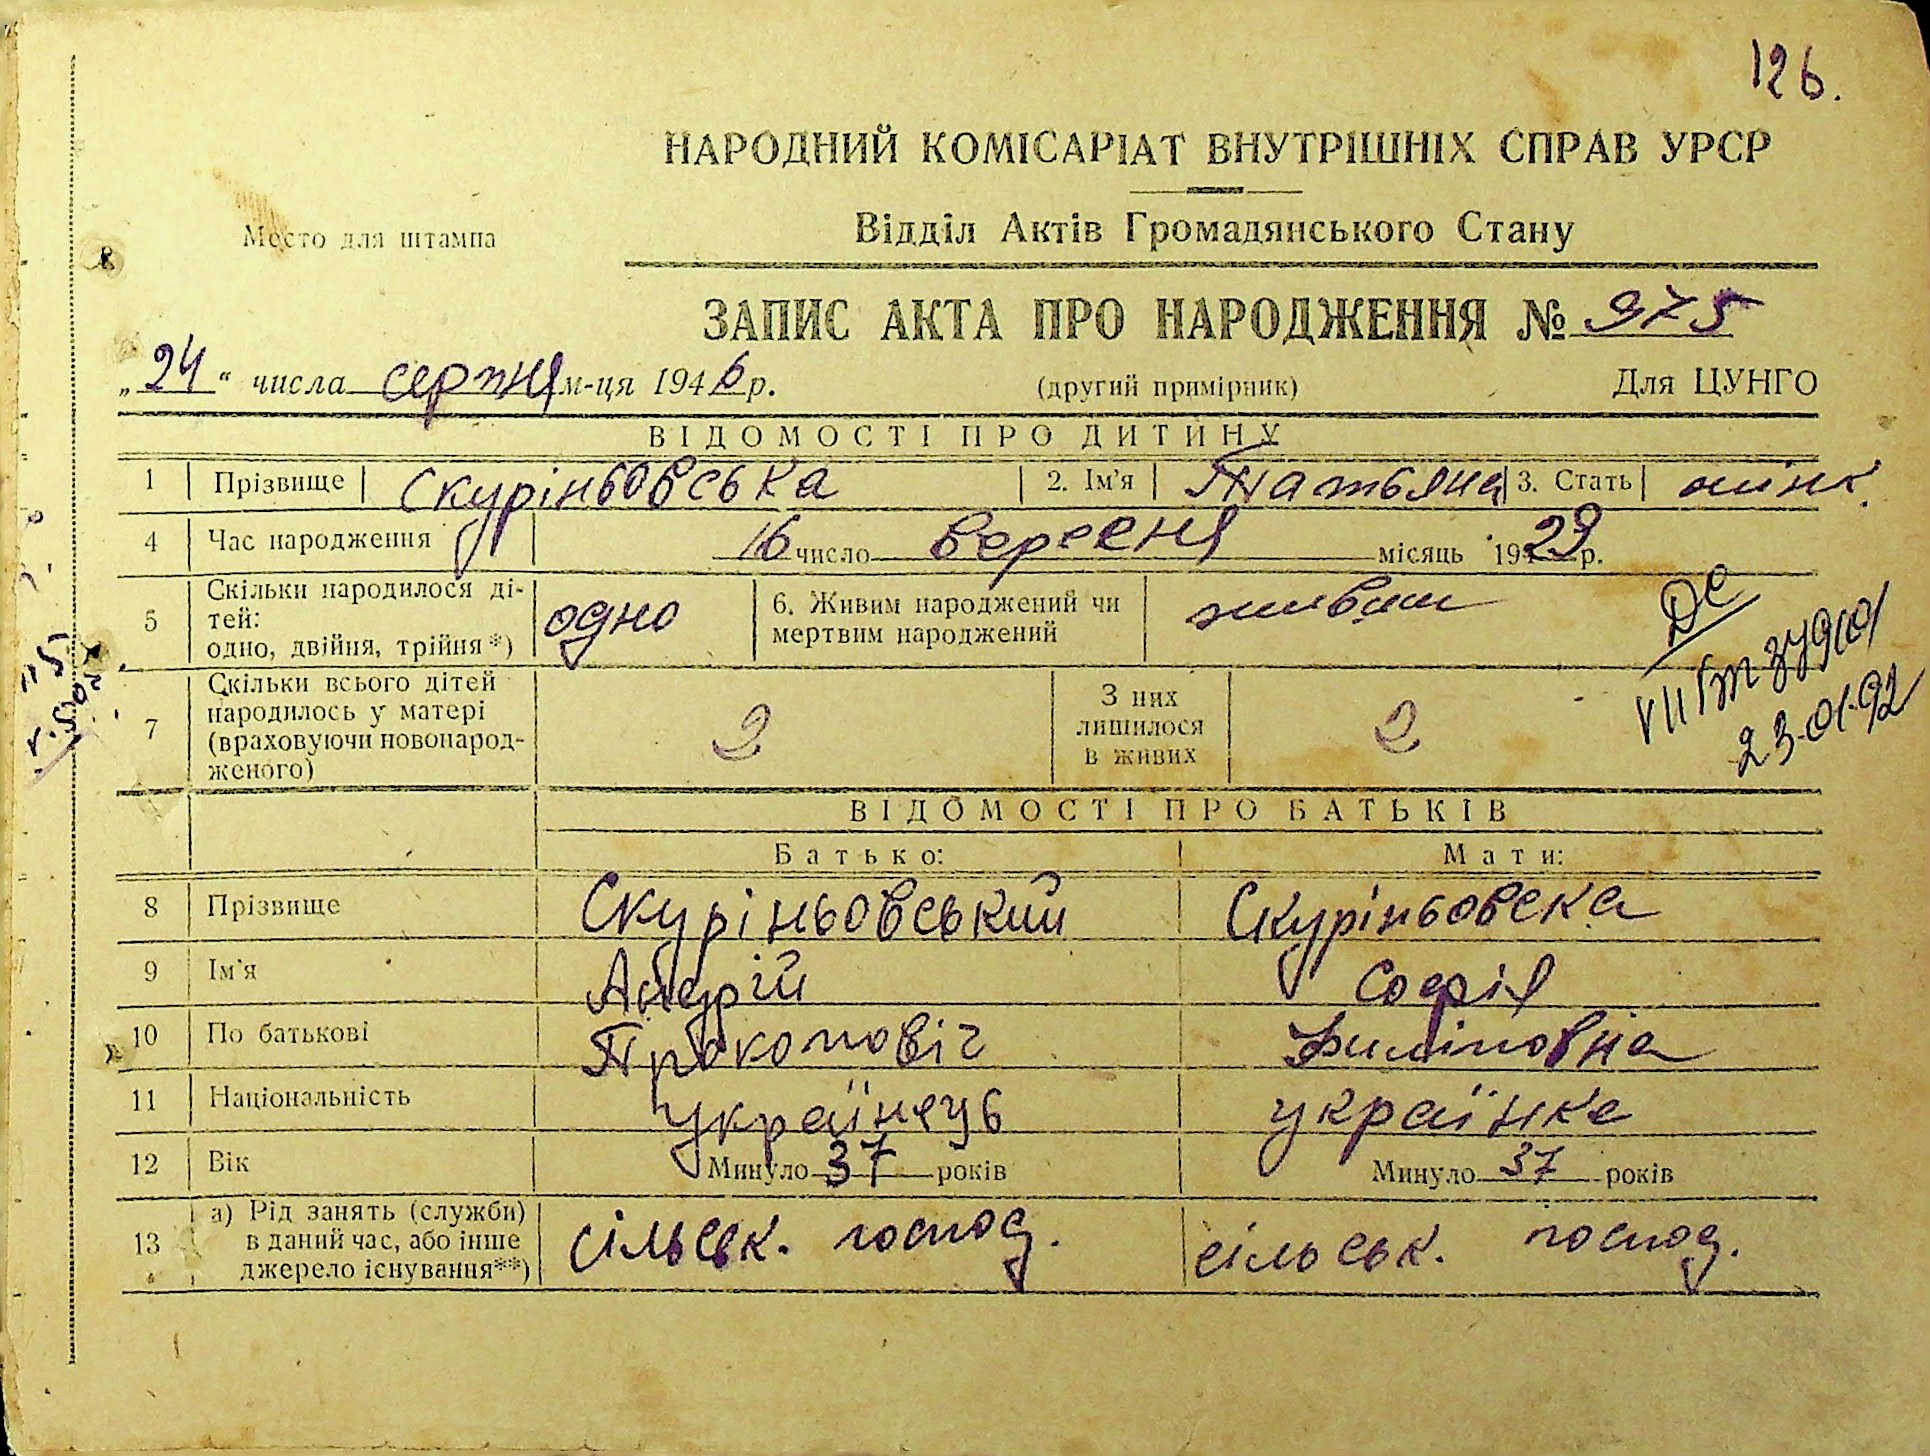 126.
НАРОДНИЙ КОМІСАРІАТ ВНУТРІШНІХ СПРАВ УРСР
Место для штампа
Відділ Актів Громадянського Стану
ЗАПИС АКТА ПРО НАРОДЖЕННЯ № 975
„24“ числа серпня м-ця 1946 р. (другий примірник) Для ЦУНГО
ВІДОМОСТІ ПРО ДИТИНУ
1 Прізвище Скуріньовська 2. Ім'я Татьяна 3. Стать жінк.
4 Час народження 16 число вересня місяць 1929 р.
5 Скільки народилося ді-
тей:
одно, двійня, трійня*) одно 6. Живим народжений чи
мертвим народжений живим
ДС
VII
23.01.92
7 Скільки всього дітей
народилось у матері
(враховуючи новонарод-
женого) 2 З них
лишилося
в живих 2
ВІДОМОСТІ ПРО БАТЬКІВ
Батько: Мати:
8 Прізвище Скуріньовський Скуріньовска
9 Ім'я Софія
10 По батькові Прокоповіч Филіповна
11 Національність українець українка
12 Вік Минуло 37 років Минуло 37 років
13 а) Рід занять (служби)
в даний час, або інше
джерело існування**) сільськ. господ. сільськ. господ.